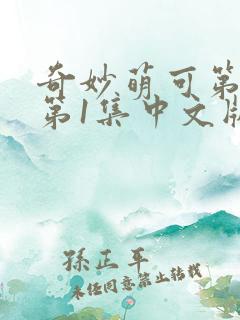 奇妙萌可第
第1集中文版
孫正平
未经同意禁止转载